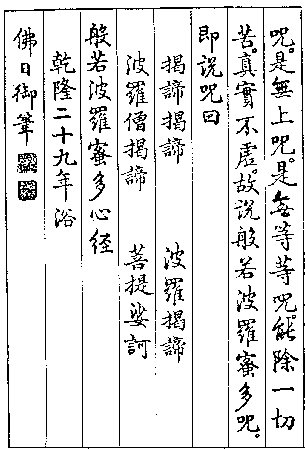 呪。是無上呪。是無等等呪。能除一切
苦。真實不虛。故説般若波羅蜜多呪。
即説呪曰
揭諦揭諦　波羅揭諦
波羅僧揭諦　菩提娑訶
般若波羅蜜多心経
乾隆二十九年浴
佛日御筆